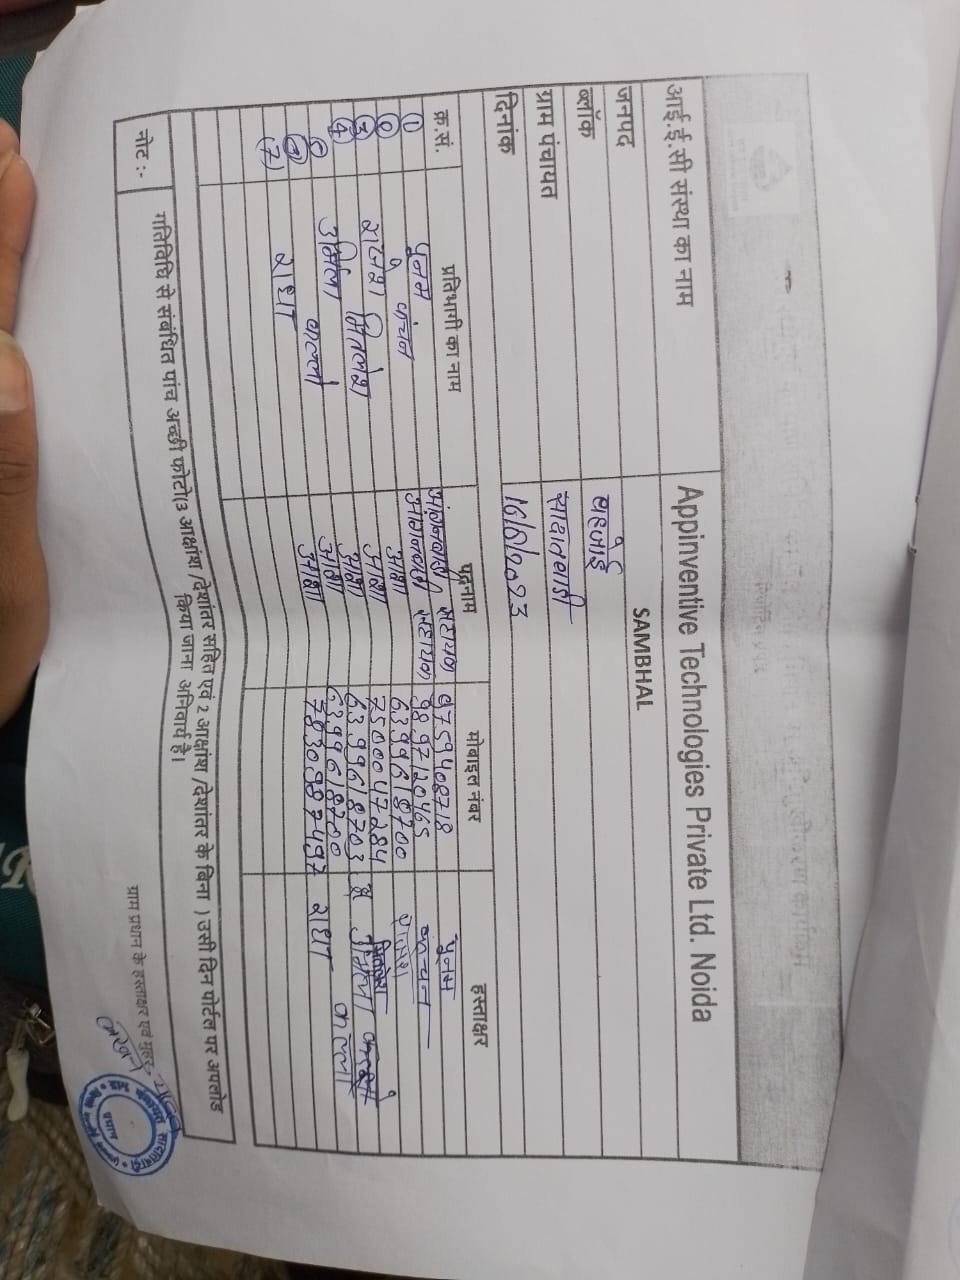 आई.ई.सी संस्था का नाम Appinventive Technologies Private Ltd. Noida
जनपद SAMBHAL
ब्लॉक बहजोई
ग्राम पंचायत सादातवाडी
दिनांक 16/6/2023
क्र.सं. प्रतिभागी का नाम पदनाम मोबाइल नंबर हस्ताक्षर
① पुनम आंगनवाडी सहायक 9759408718 पुनम
② कंचन आंगनवाडी सहायक 9897120465
③ राजेश आशा 6399618700
④ मितलेश आशा 7500047284 मितलेश
उर्मिला आशा 6399618703 उर्मिला
कल्लो आशा 6399618700
⑦ राधा आशा राधा
नोट :- गतिविधि से संबंधित पांच अच्छी फोटो(3 आक्षांश /देशांतर सहित एवं 2 आक्षांश /देशांतर के बिना ) उसी दिन पोर्टल पर अपलोड
किया जाना अनिवार्य है।
ग्राम प्रधान के हस्ताक्षर एवं मुहर